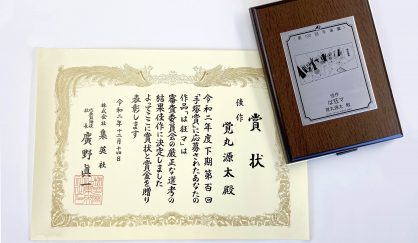 賞状
佳作
覚丸源太殿
令和二年度下期第百回
「手塚賞」に応募されたあなたの
作品「は狂マ」は
審査委員会の厳正な選考の
結果佳作に決定しました
よってここに賞状と賞金を贈り
表彰します
令和二年十二月十四日
株式会社 集英社
廣野眞一
佳作
は狂マ
覚丸源太 殿